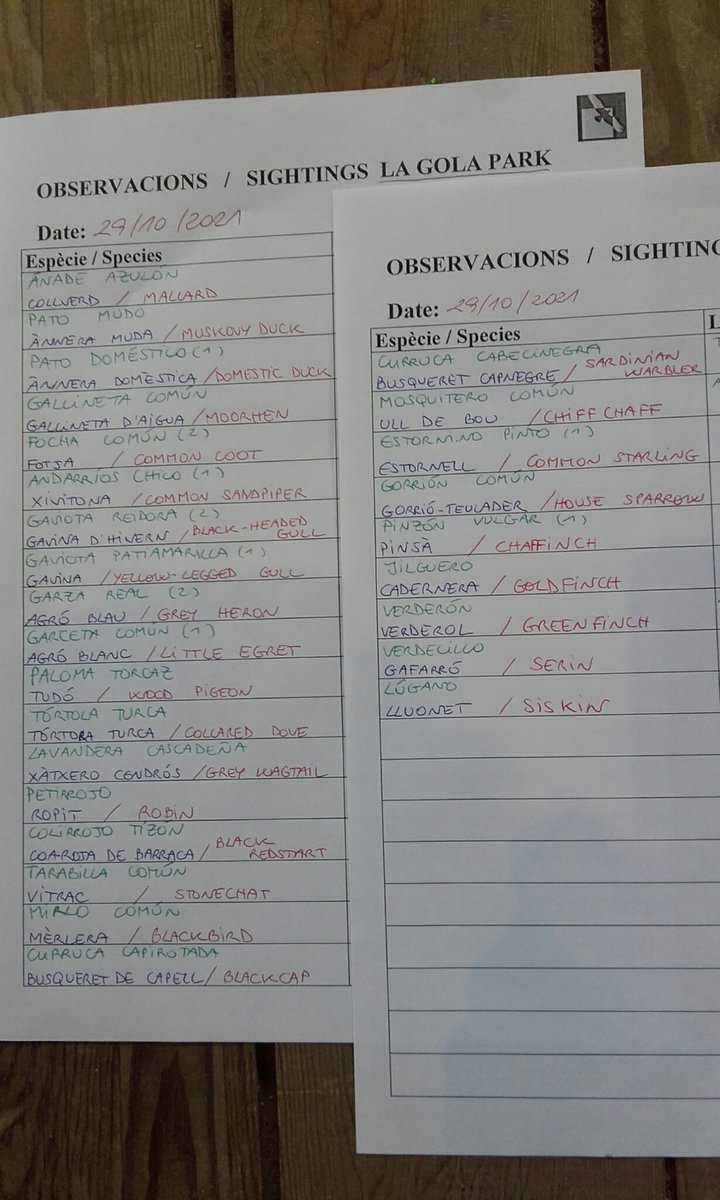 OBSERVACIONS / SIGHTINGS LA GOLA PARK
Date: 29/10/2021
Espècie / Species
ÁNADE AZULÓN
COLLVERD / MALLARD
PATO MUDO
ÀNNERA MUDA / MUSKOVY DUCK
PATO DOMÉSTICO (1)
ÀNNERA DOMÈSTICA / DOMESTIC DUCK
GALLINETA COMÚN
GALLINETA D'AIGUA / MOORHEN
FOCHA COMÚN (2)
FOTJA / COMMON COOT
ANDARRÍOS CHICO (1)
XIVITONA / COMMON SANDPIPER
GAVIOTA REIDORA (2)
GAVINA D'HIVERN / BLACK-HEADED GULL
GAVIOTA PATIAMARILLA (1)
GAVINA / YELLOW-LEGGED GULL
GARZA REAL (2)
AGRÓ BLAU / GREY HERON
GARCETA COMÚN (1)
AGRÓ BLANC / LITTLE EGRET
PALOMA TORCAZ
TUDÓ / WOOD PIGEON
TÓRTOLA TURCA
TÓRTORA TURCA / COLLARED DOVE
LAVANDERA CASCADEÑA
XÀTXERO CENDRÓS / GREY WAGTAIL
PETIRROJO
ROPIT / ROBIN
COLIRROJO TIZÓN
COA-ROJA DE BARRACA / BLACK REDSTART
TARABILLA COMÚN
VITRAC / STONECHAT
MIRLO COMÚN
MÈRLERA / BLACKBIRD
CURRUCA CAPIROTADA
BUSQUERET DE CAPELL / BLACKCAP
OBSERVACIONS / SIGHTING
Date: 29/10/2021
Espècie / Species
CURRUCA CABECINEGRA
BUSQUERET CAPNEGRE / SARDINIAN WARBLER
MOSQUITERO COMÚN
ULL DE BOU / CHIFF CHAFF
ESTORNINO PINTO (1)
ESTORNELL / COMMON STARLING
GORRIÓN COMÚN
GORRIÓ-TEULADER / HOUSE SPARROW
PINZÓN VULGAR (1)
PINSÀ / CHAFFINCH
JILGUERO
CADERNERA / GOLDFINCH
VERDERÓN
VERDEROL / GREENFINCH
VERDECILLO
GAFARRÓ / SERIN
LÚGANO
LLUONET / SISKIN